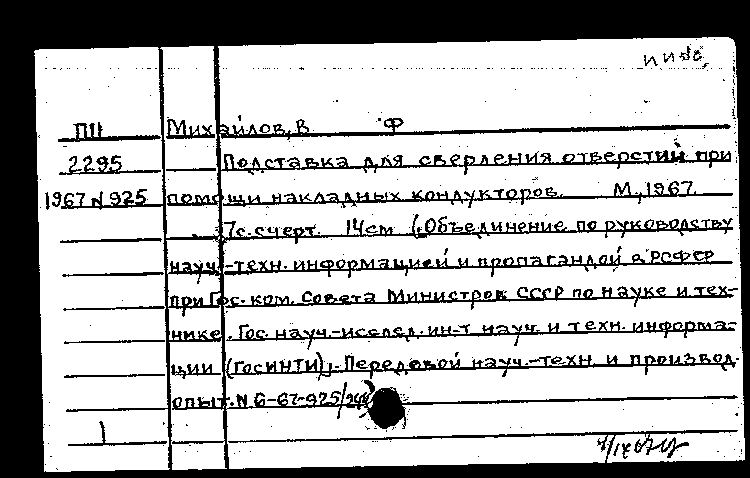 ПП Михайлов, В Ф
2295 Подставка для сверления отверстий при
1967 N 925 помощи накладных кондукторов. М., 1967.
7с. с черт. 14см (Объединение по руководству
науч.-техн. информацией и пропагандой в РСФСР
при Гос. ком. Совета Министров СССР по науке и тех-
нике. Гос науч.-исслед. ин-т науч. и техн. информа-
ции (ГОСИНТИ). Передовой науч.-техн. и производ.
опыт. N 6-67-925/
1